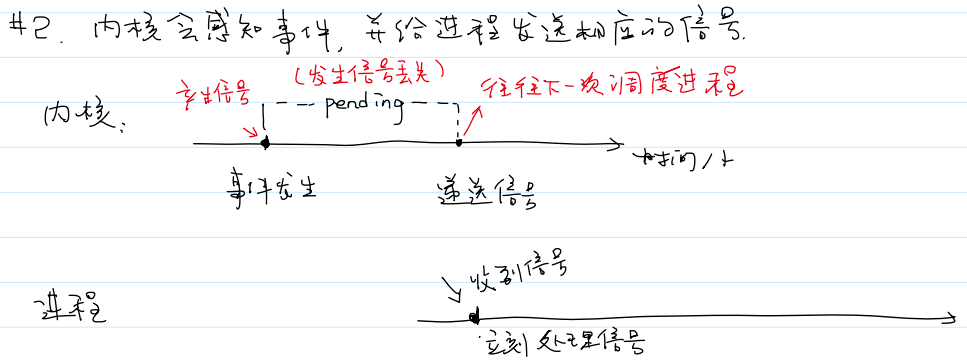 #2. 内核会感知事件, 并给进程发送相应的信号.
(发生信号丢失)
产生信号
pending
往往下一次调度进程
内核:
时间/t
事件发生
递送信号
收到信号
进程
立刻处理信号